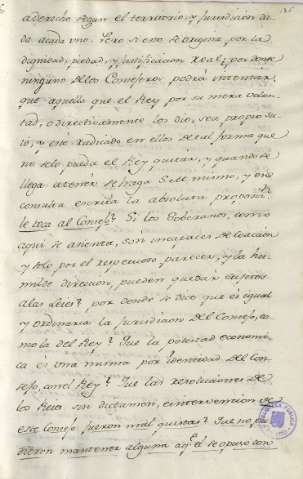 a derecho segun el territorio, y Jurisdicion da-
da a cada uno. Pero si esto se origina por la
dignidad, piedad, y justificacion Real; por donde
ninguno de los Consejeros podrá intentar,
que aquello que el Rey por su mera volun-
tad, o directivamente los dio, sea propio su-
yo, y esté radicado en ellos de tal forma que
no se lo pueda el Rey quitar, y quando se
llega a tener de S. M. mismo, y
consulta escrita la absoluta
le toca al Consejo? Si los Soberanos, como
aqui se asienta, son incapaces de coaccion
y solo por el respectuoso parecer, y la hu-
milde direccion, pueden quedar sujetos
a las Leies? por donde se dice que es igual
y ordinaria la Jurisdicion del Consejo, co-
mo la del Rey? Que la potestad economi-
ca es una misma por identidad del Con-
sejo, con el Rey? Que las resoluciones de
los Reies sin dictamen, e intervencion de
este Consejo fueron mal quistas? Que no pu-
dieron mantener alguna aqui se opuso con